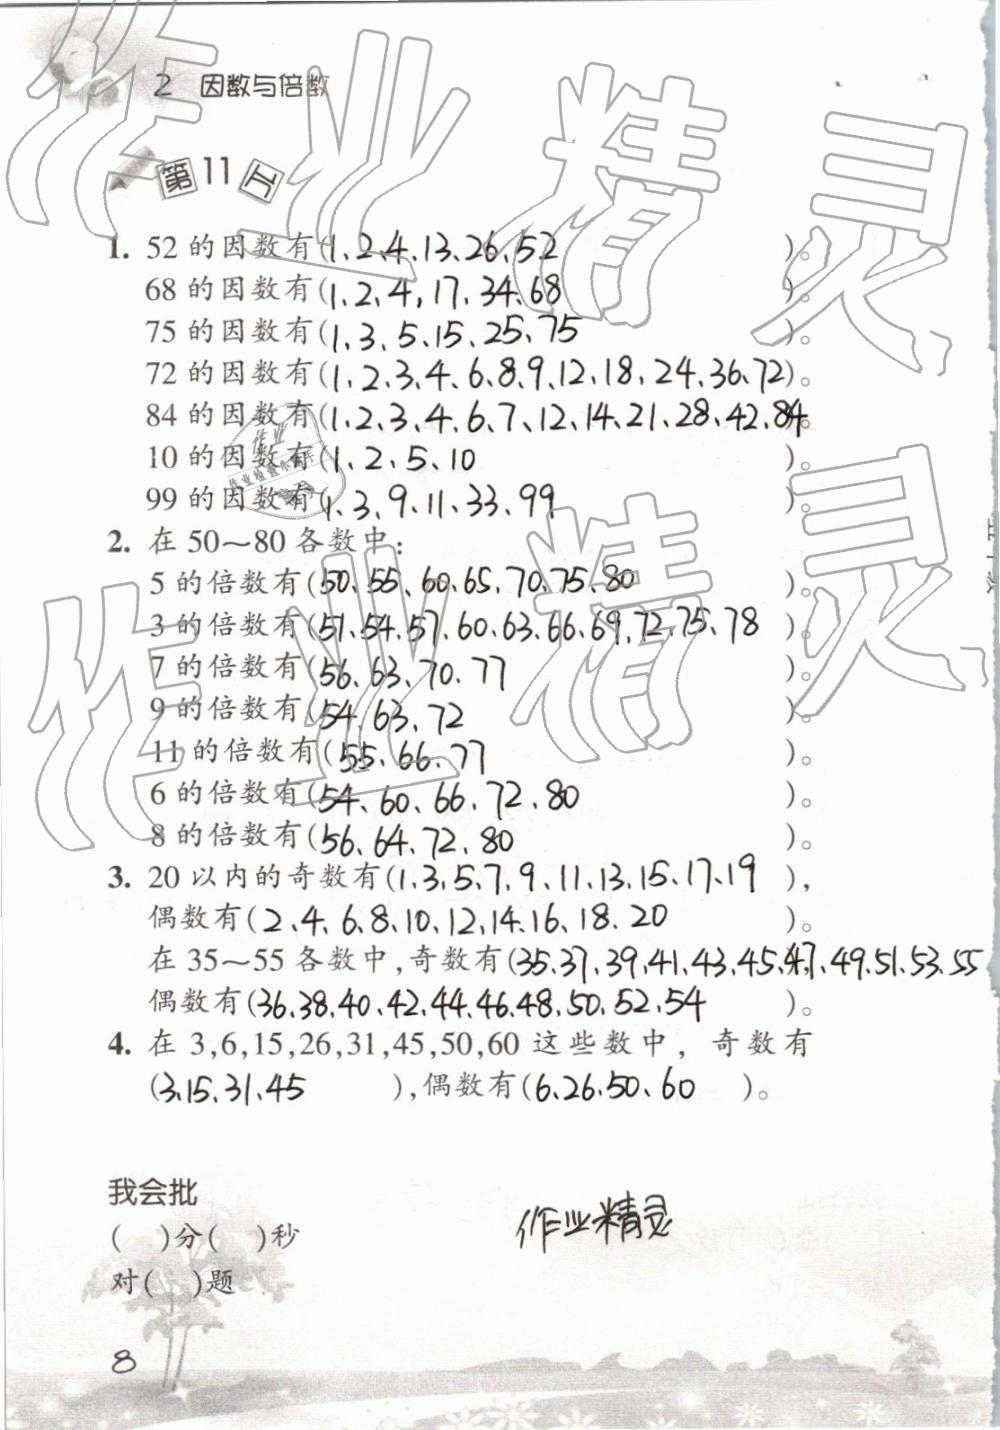 2 因数与倍数
第11天
1. 52的因数有(1、2、4、13、26、52 )。
68的因数有(1、2、4、17、34、68 )。
75的因数有(1、3、5、15、25、75 )。
72的因数有(1、2、3、4、6、8、9、12、18、24、36、72)。
84的因数有(1、2、3、4、6、7、12、14、21、28、42、84)。
10的因数有(1、2、5、10 )。
99的因数有(1、3、9、11、33、99 )。
2. 在50～80各数中:
5的倍数有(50、55、60、65、70、75、80 )。
3的倍数有(51、54、57、60、63、66、69、72、75、78 )。
7的倍数有(56、63、70、77 )。
9的倍数有(54、63、72 )。
11的倍数有(55、66、77 )。
6的倍数有(54、60、66、72、80 )。
8的倍数有(56、64、72、80 )。
3. 20以内的奇数有(1、3、5、7、9、11、13、15、17、19 ),
偶数有(2、4、6、8、10、12、14、16、18、20 )。
在35～55各数中,奇数有(35、37、39、41、43、45、47、49、51、53、55
偶数有(36、38、40、42、44、46、48、50、52、54 )。
4. 在3,6,15,26,31,45,50,60这些数中, 奇数有
(3、15、31、45 ),偶数有(6、26、50、60 )。
我会批
( )分( )秒
对( )题
作业精灵
8
作业精灵
作业精灵
作业
作业检查小帮手